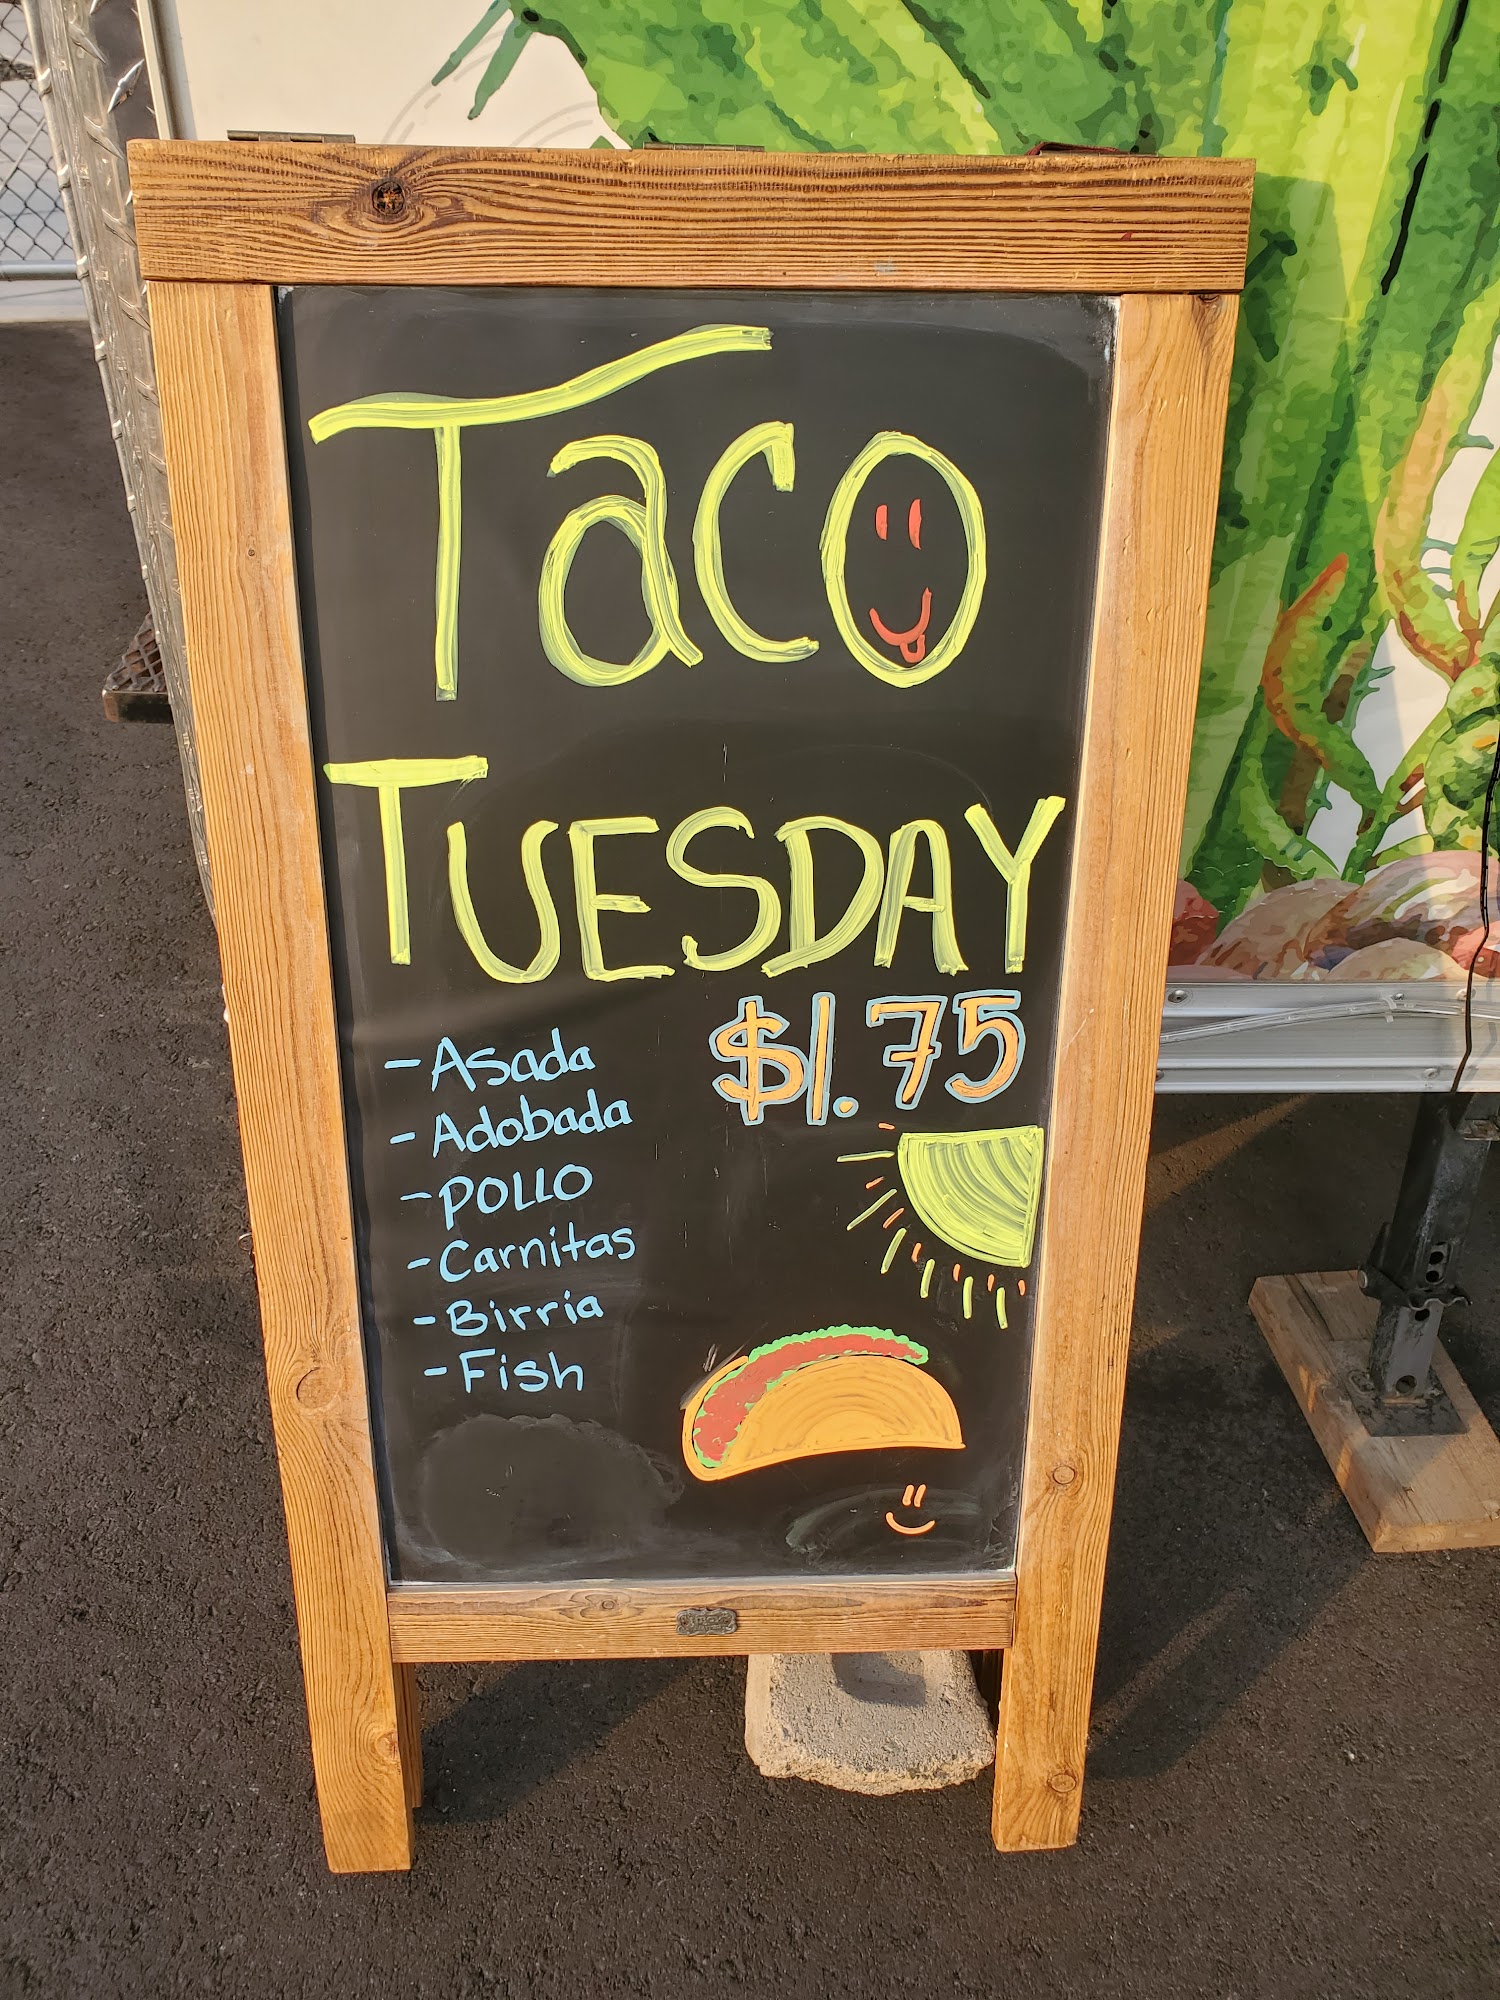 Taco
TUESDAY
$1.75
- Asada
- Adobada
- POLLO
- Carnitas
- Birria
- Fish